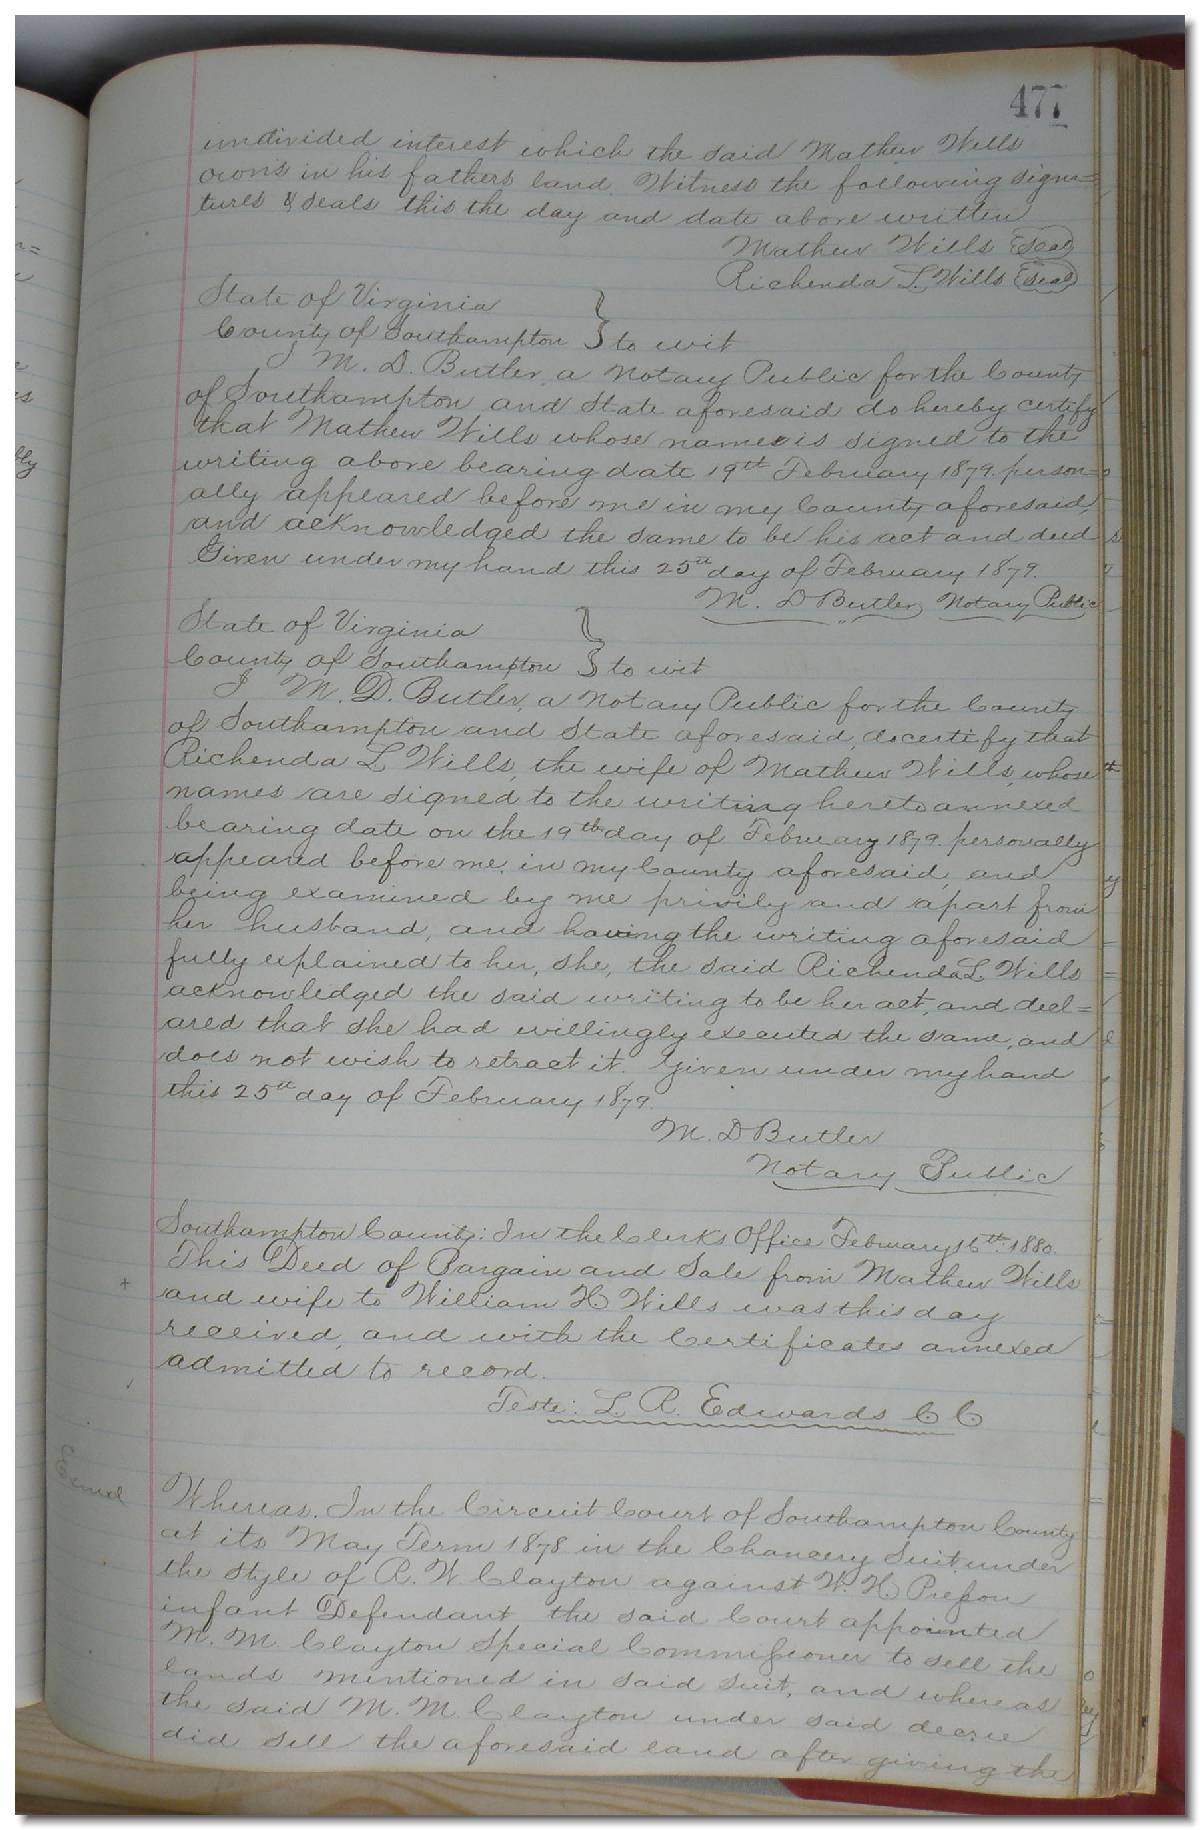 477
undivided interest which the said Mathew Wills
owns in his fathers land. Witness the following signa=
tures & seals this the day and date above written
Mathew Wills (Seal)
Richenda L. Wills (Seal)
State of Virginia
County of Southampton } to wit
I M. D. Butler, a Notary Public for the County
of Southampton and State aforesaid do hereby certify
that Mathew Wills whose name is signed to the
writing above bearing date 19th February 1879. person=
ally appeared before me in my County aforesaid,
and acknowledged the same to be his act and deed
Given under my hand this 25th day of February 1879.
M. D Butler, Notary Public
State of Virginia
County of Southampton } to wit
I M. D. Butler, a Notary Public for the County
of Southampton and State aforesaid, do certify that
Richenda L Wills, the wife of Mathew Wills, whose
names are signed to the writing hereto annexed
bearing date on the 19th day of February 1879. personally
appeared before me, in my County aforesaid, and
being examined by me privily and apart from
her husband, and having the writing aforesaid
fully explained to her, she, the said Richenda L. Wills
acknowledged the said writing to be her act, and decl=
ared that she had willingly executed the same, and
does not wish to retract it. Given under my hand
this 25th day of February 1879.
M. D Butler
Notary Public
Southampton County: In the Clerks Office February 16th. 1880.
This Deed of Bargain and Sale from Mathew Wills
+ and wife to William H Wills was this day
received, and with the Certificates annexed
admitted to record.
Teste: L. R. Edwards C C
Whereas. In the Circuit Court of Southampton County
at its May Term 1878 in the Chancery Suit under
the style of R. W Clayton against W. H Presson
infant Defendant the said Court appointed
M. M. Clayton Special Commissioner to sell the
lands mentioned in said suit, and whereas
the said M. M. Clayton under said decree
did sell the aforesaid land after giving the